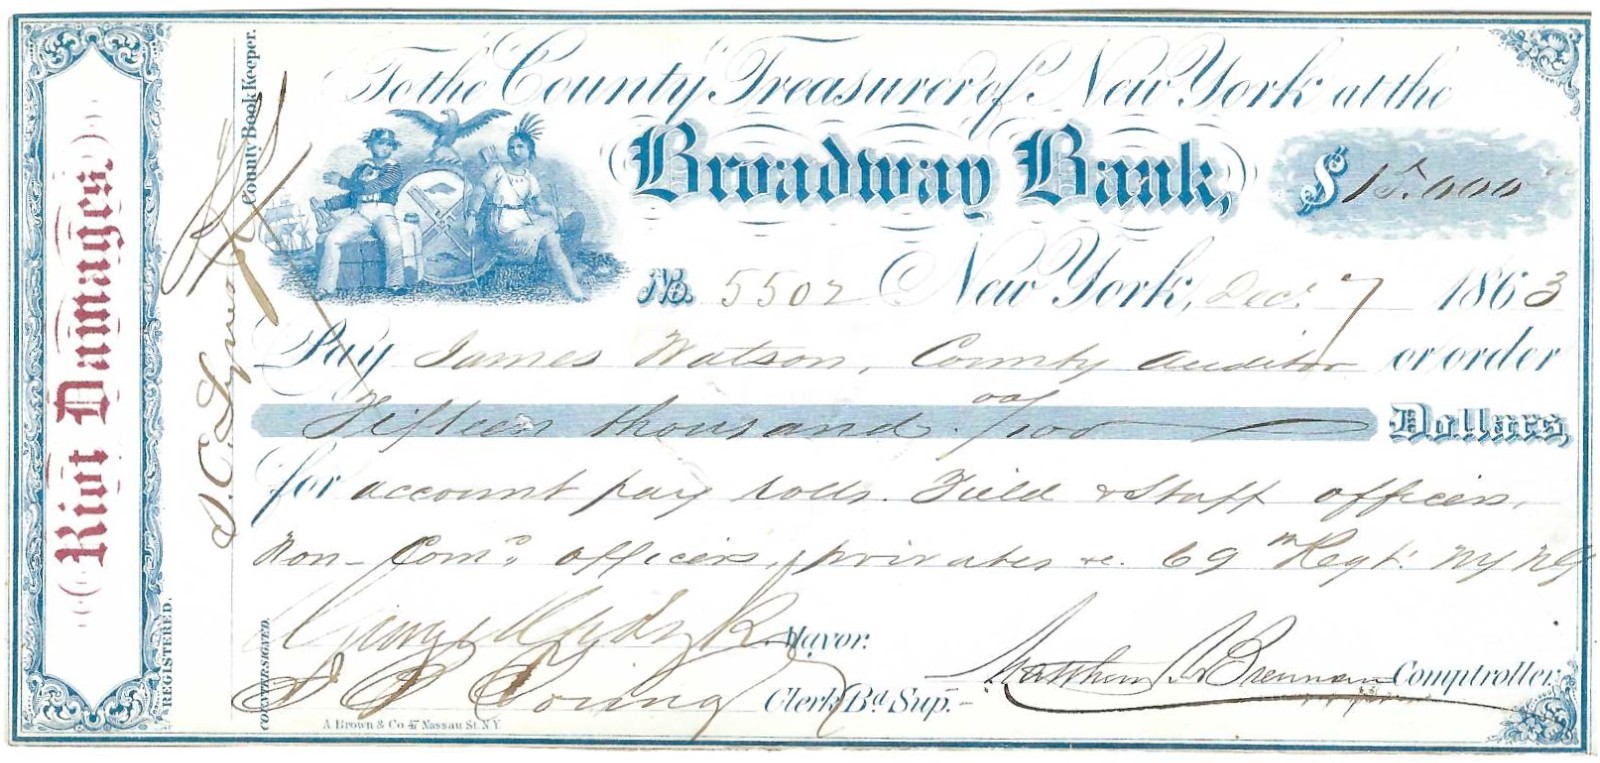 Riot Damages.
REGISTERED.
County Book Keeper.
I. C. Lynes
COUNTERSIGNED.
To the County Treasurer of New York at the
Broadway Bank,
$ 15.000
No. 5502 New York, Dec. 7 1863
Pay James Watson, County Auditor or order
Fifteen thousand. 00/100 Dollars,
for account pay rolls. Field & Staff officers,
Non-Comd officers, privates &c. 69th Regt. NY NG
George Opdyke Mayor.
Matthew T. Brennan Comptroller.
Clerk Bd. Sup.
A Brown & Co 47 Nassau St. N.Y.